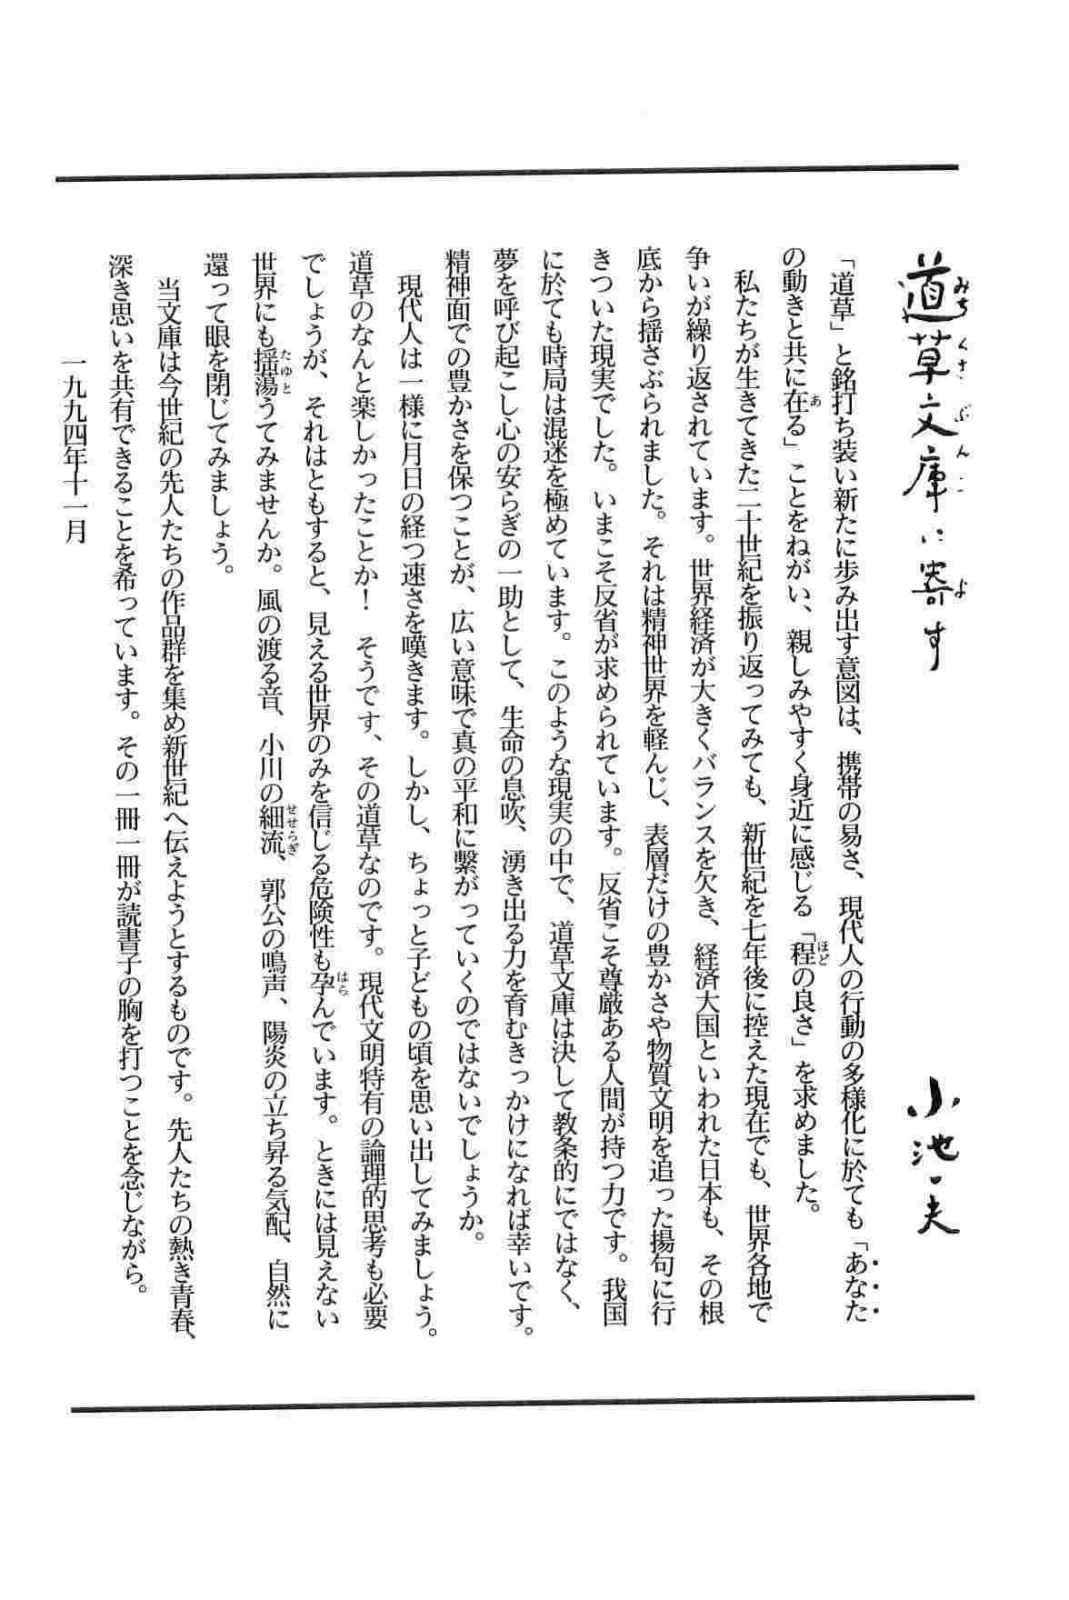 道草文庫に寄す
みちくさぶんこ よ
小池一夫
「道草」と銘打ち装い新たに歩み出す意図は、携帯の易さ、現代人の行動の多様化に於ても「あなた
の動きと共に在る」ことをねがい、親しみやすく身近に感じる「程の良さ」を求めました。
私たちが生きてきた二十世紀を振り返ってみても、新世紀を七年後に控えた現在でも、世界各地で
争いが繰り返されています。世界経済が大きくバランスを欠き、経済大国といわれた日本も、その根
底から揺さぶられました。それは精神世界を軽んじ、表層だけの豊かさや物質文明を追った揚句に行
きついた現実でした。いまこそ反省が求められています。反省こそ尊厳ある人間が持つ力です。我国
に於ても時局は混迷を極めています。このような現実の中で、道草文庫は決して教条的にではなく、
夢を呼び起こし心の安らぎの一助として、生命の息吹、湧き出る力を育むきっかけになれば幸いです。
精神面での豊かさを保つことが、広い意味で真の平和に繋がっていくのではないでしょうか。
現代人は一様に月日の経つ速さを嘆きます。しかし、ちょっと子どもの頃を思い出してみましょう。
道草のなんと楽しかったことか！　そうです、その道草なのです。現代文明特有の論理的思考も必要
でしょうが、それはともすると、見える世界のみを信じる危険性も孕んでいます。ときには見えない
世界にも揺蕩うてみませんか。風の渡る音、小川の細流、郭公の鳴声、陽炎の立ち昇る気配、自然に
還って眼を閉じてみましょう。
当文庫は今世紀の先人たちの作品群を集め新世紀へ伝えようとするものです。先人たちの熱き青春、
深き思いを共有できることを希っています。その一冊一冊が読書子の胸を打つことを念じながら。
一九九四年十一月